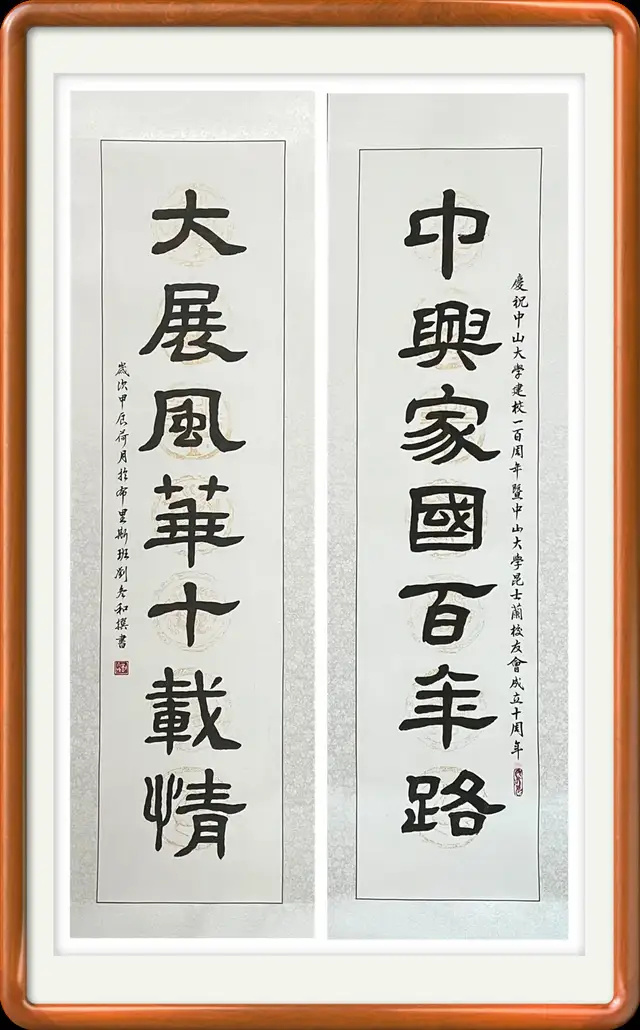 慶祝中山大學建校一百周年暨中山大學昆士蘭校友會成立十周年
中興家國百年路
大展風華十載情
歲次甲辰荷月於布里斯班劉冬和撰書